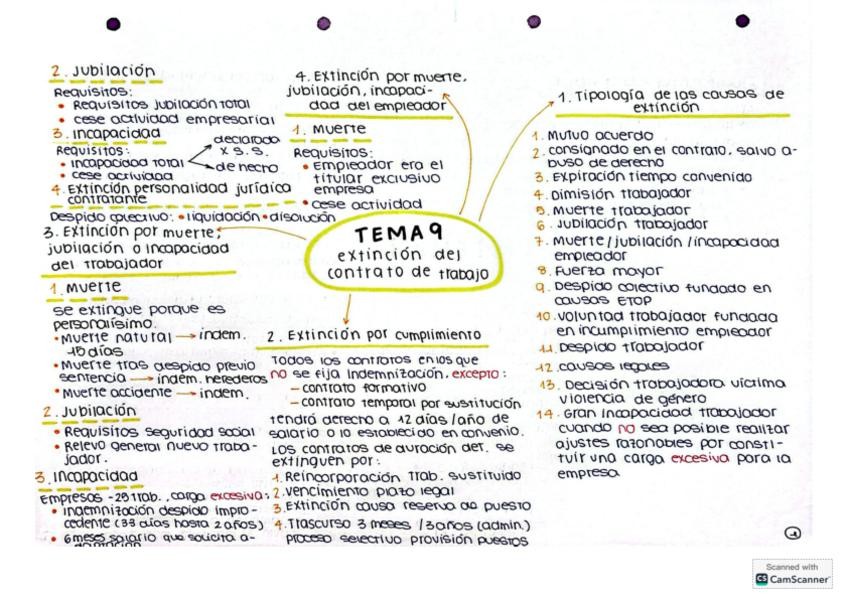 TEMA 9
extinción del
contrato de trabajo
1. Tipología de las causas de
extinción
1. Mutuo acuerdo
2. consignado en el contrato, salvo a-
buso de derecho
3. Expiración tiempo convenido
4. Dimisión trabajador
5. Muerte trabajador
6. Jubilación trabajador
7. Muerte/jubilación/incapacidad
empleador
8. Fuerza mayor
9. Despido colectivo fundado en
causas ETOP
10. Voluntad trabajador fundada
en incumplimiento empleador
11. Despido trabajador
12. causas legales
13. Decisión trabajadora víctima
violencia de género
14. Gran Incapacidad trabajador
cuando no sea posible realizar
ajustes razonables por consti-
tuir una carga excesiva para la
empresa
2. Extinción por cumplimiento
Todos los contratos en los que
no se fija indemnización, excepto:
- contrato formativo
- contrato temporal por sustitución
tendrá derecho a 12 días/año de
salario o lo establecido en convenio.
Los contratos de duración det. se
extinguen por:
1. Reincorporación trab. sustituido
2. vencimiento plazo legal
3. Extinción causa reserva de puesto
4. Trascurso 3 meses /3 años (admin.)
proceso selectivo provisión puestos
3. Extinción por muerte,
jubilación o incapacidad
del trabajador
1. Muerte
se extingue porque es
personalísimo.
• Muerte natural → indem.
15 días
• Muerte tras despido previo
sentencia → indem. herederos
• Muerte accidente → indem.
2. Jubilación
• Requisitos seguridad social
• Relevo general nuevo traba-
jador.
3. Incapacidad
Empresas -25 trab., carga excesiva:
• indemnización despido impro-
cedente (33 días hasta 2 años)
• 6 meses salario que solicita a-
4. Extinción por muerte,
jubilación, incapaci-
dad del empleador
1. Muerte
Requisitos:
• Empleador era el
titular exclusivo
empresa
• cese actividad
2. Jubilación
Requisitos:
• Requisitos jubilación total
• cese actividad empresarial
3. Incapacidad
Requisitos:
• incapacidad total
declarada
x S.S.
de hecho
• cese actividad
4. Extinción personalidad jurídica
contratante
Despido colectivo: • liquidación • disolución
1
Scanned with
CS CamScanner